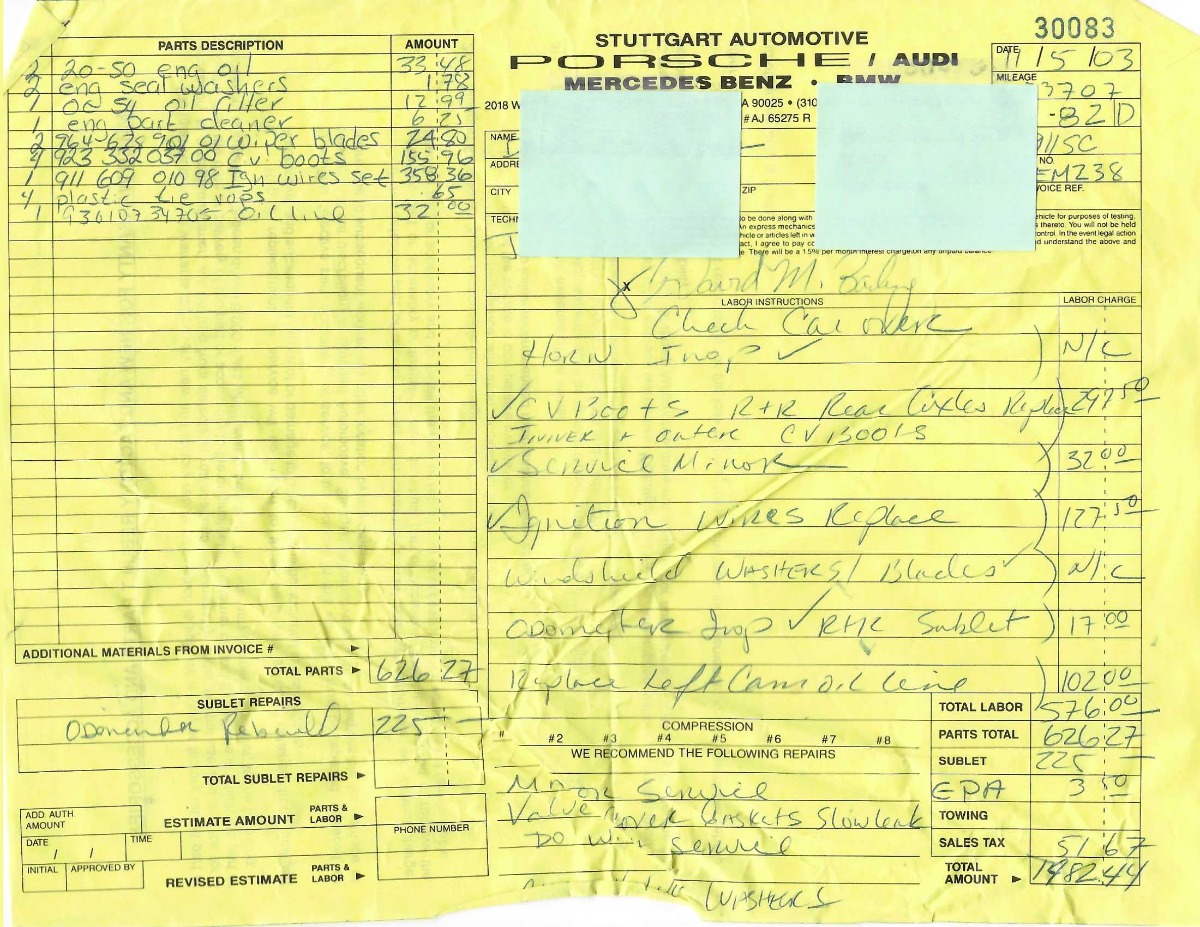 30083
STUTTGART AUTOMOTIVE
PORSCHE / AUDI
MERCEDES BENZ • BMW
2018 W
A 90025 • (310
# AJ 65275 R
DATE 11/5/03
MILEAGE
3707
-82D
911SC
NO.
EM238
VOICE REF.
NAME
ADDRE
CITY
ZIP
TECHN
to be done along with
An express mechanics
hicle or articles left in w
act, I agree to pay c
e. There will be a 1.5% per month interest charge on any unpaid balance.
ehicle for purposes of testing,
s thereto. You will not be held
ontrol. In the event legal action
d understand the above and
PARTS DESCRIPTION AMOUNT
2 20-50 eng oil 33.48
2 eng seal washers 1.78
1 OC 54 oil filter 12.99
1 eng part cleaner 6.25
2 964-628 901 01 wiper blades 24.80
4 923 332 037 00 CV boots 155.96
1 911 609 010 98 Ign wires set 358.36
4 plastic tie raps .65
1 93010734705 oil line 32.00
ADDITIONAL MATERIALS FROM INVOICE #
TOTAL PARTS 626.27
SUBLET REPAIRS
Odometer Rebuild 225 —
TOTAL SUBLET REPAIRS
ADD AUTH AMOUNT
ESTIMATE AMOUNT PARTS & LABOR
PHONE NUMBER
DATE / / TIME
INITIAL APPROVED BY
REVISED ESTIMATE PARTS & LABOR
X David M.
LABOR INSTRUCTIONS LABOR CHARGE
Check Car over
Horn Inop ✓ N/C
✓ CV Boots R+R Rear Axles Replace 297 50
Inner + outer CV Boots
✓ Service Minor 32 00
✓ Ignition Wires Replace 127 50
Windshield Washers / Blades ✓ N/C
Odometer Inop ✓ R+R Sublet 17 00
Replace Left Cam oil line 102 00
COMPRESSION
# #2 #3 #4 #5 #6 #7 #8
WE RECOMMEND THE FOLLOWING REPAIRS
Minor Service
Valve Cover Gaskets Slow leak
Do Service
Washers
TOTAL LABOR 576.00
PARTS TOTAL 626.27
SUBLET 225 —
EPA 3 50
TOWING
SALES TAX 51.67
TOTAL AMOUNT 1482.44